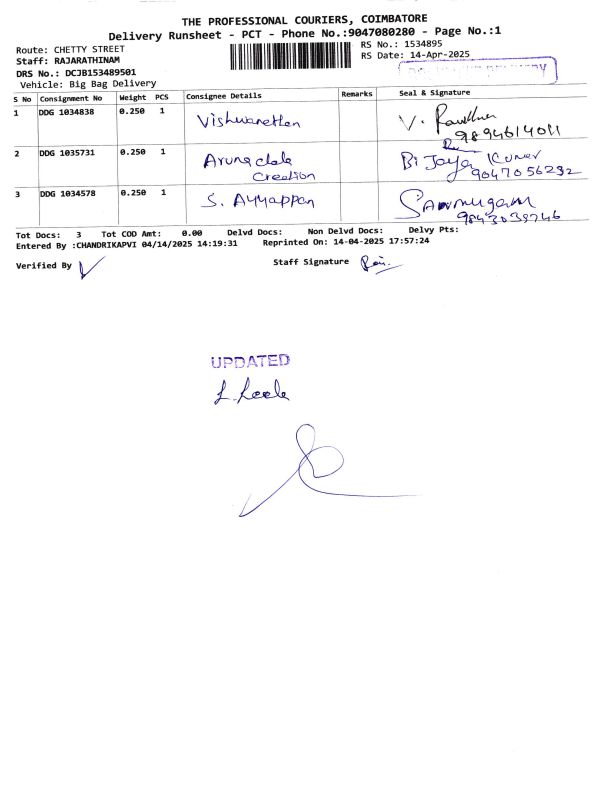 THE PROFESSIONAL COURIERS, COIMBATORE
Delivery Runsheet - PCT - Phone No.:9047080280 - Page No.:1
Route: CHETTY STREET
RS No.: 1534895
Staff: RAJARATHINAM
RS Date: 14-Apr-2025
DRS No.: DCJB153489501
DELIVERY
Vehicle: Big Bag Delivery
S No Consignment No Weight PCS Consignee Details Remarks Seal & Signature
1 DDG 1034838 0.250 1 Vishwanethan V.
9894614011
2 DDG 1035731 0.250 1 Arunachala Bijaya Kumar
Creation 9047056292
3 DDG 1034578 0.250 1 S. Ayyappan Sanmugam
9843039746
Tot Docs: 3 Tot COD Amt: 0.00 Delvd Docs: Non Delvd Docs: Delvy Pts:
Entered By :CHANDRIKAPVI 04/14/2025 14:19:31 Reprinted On: 14-04-2025 17:57:24
Verified By Staff Signature
UPDATED